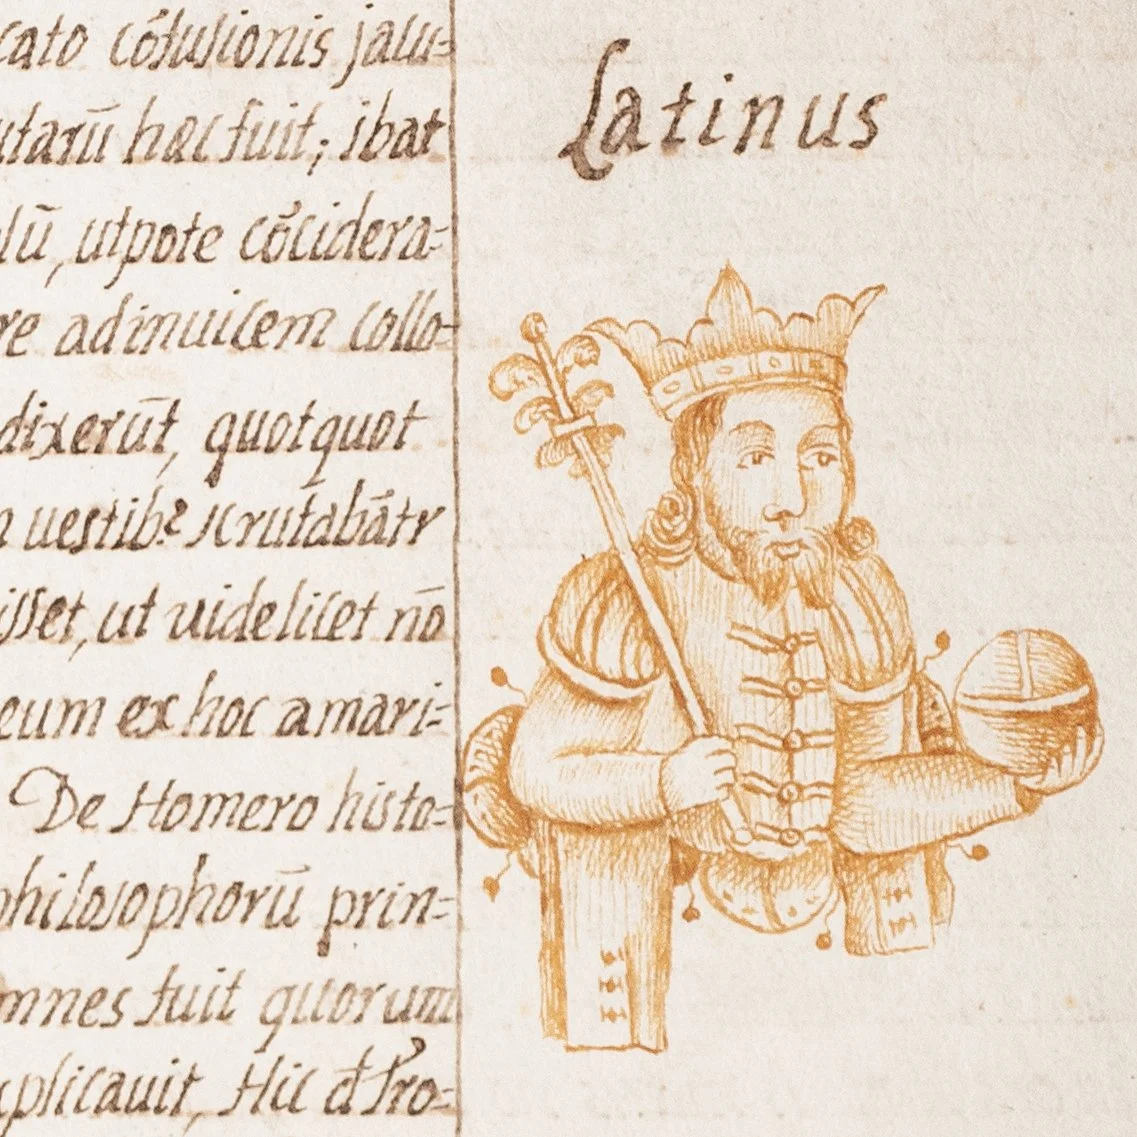 cato cõfusionis jacu=
utarũ hæc fuit; ibat
lũ, utpote cõcidera=
re adinuicem collo=
dixerũt, quotquot
uestib? scrutabãtr
isset, ut uidelicet nõ
eum ex hoc amari=
De Homero histo=
philosophorũ prin=
mnes fuit quorum
plicauit, Hic
Latinus